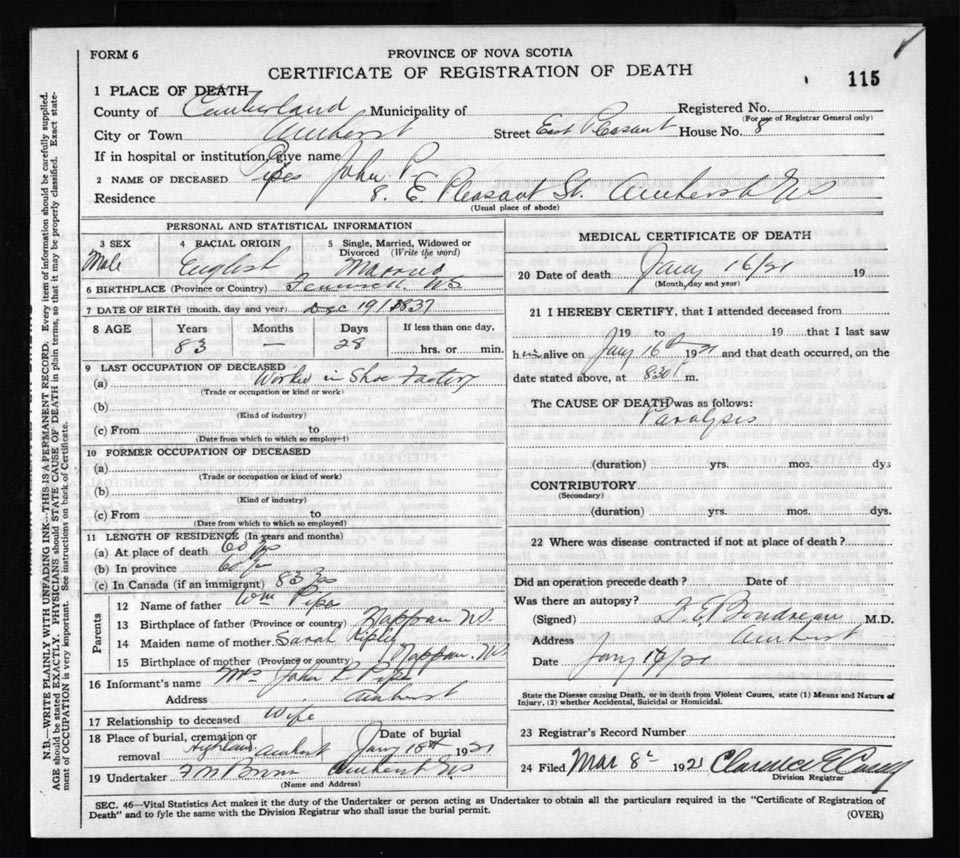 FORM 6
PROVINCE OF NOVA SCOTIA
CERTIFICATE OF REGISTRATION OF DEATH
115
1 PLACE OF DEATH
County of Cumberland Municipality of Registered No.
(For use of Registrar General only)
City or Town Amherst Street East Pleasant House No. 8
If in hospital or institution, give name
2 NAME OF DECEASED Pipes John R
Residence 8. E. Pleasant St. Amherst NS
(Usual place of abode)
PERSONAL AND STATISTICAL INFORMATION
3 SEX 4 RACIAL ORIGIN 5 Single, Married, Widowed or Divorced (Write the word)
Male English Married
6 BIRTHPLACE (Province or Country) Fenwick NS
7 DATE OF BIRTH (month, day and year) Dec 19/1837
8 AGE Years Months Days If less than one day,
83 — 28 hrs. or min.
9 LAST OCCUPATION OF DECEASED
(a) Worked in Shoe Factory
(Trade or occupation or kind or work)
(b)
(Kind of industry)
(c) From to
(Date from which to which so employed)
10 FORMER OCCUPATION OF DECEASED
(a)
(Trade or occupation or kind of work)
(b)
(Kind of industry)
(c) From to
(Date from which to which so employed)
11 LENGTH OF RESIDENCE (In years and months)
(a) At place of death 60 yrs
(b) In province 60 yr
(c) In Canada (if an immigrant) 83 yrs
Parents
12 Name of father Wm Pipes
13 Birthplace of father (Province or country) Nappan NS.
14 Maiden name of mother Sarah Ripley
15 Birthplace of mother (Province or country) Nappan. NS
16 Informant's name Mrs John R Pipes
Address Amherst
17 Relationship to deceased Wife
18 Place of burial, cremation or removal Highland Amherst Date of burial Jany 18th 1921
19 Undertaker Amherst NS
(Name and Address)
MEDICAL CERTIFICATE OF DEATH
20 Date of death Jany 16/21 19
(Month, day and year)
21 I HEREBY CERTIFY, that I attended deceased from
19 to 19 that I last saw
him alive on Jany 16th 1921 and that death occurred, on the
date stated above, at 8.30 m.
The CAUSE OF DEATH was as follows:
Paralysis
(duration) yrs. mos. dys
CONTRIBUTORY
(Secondary)
(duration) yrs. mos. dys.
22 Where was disease contracted if not at place of death?
Did an operation precede death? Date of
Was there an autopsy?
(Signed) Boudreau M.D.
Address Amherst
Date Jany /21
State the Disease causing Death, or in death from Violent Causes, state (1) Means and Nature of
Injury, (2) whether Accidental, Suicidal or Homicidal.
23 Registrar's Record Number
24 Filed Mar 8 1921 Clarence E Casey
Division Registrar
SEC. 46—Vital Statistics Act makes it the duty of the Undertaker or person acting as Undertaker to obtain all the particulars required in the "Certificate of Registration of
Death" and to fyle the same with the Division Registrar who shall issue the burial permit.
(OVER)
N.B.—WRITE PLAINLY WITH UNFADING INK—THIS IS A PERMANENT RECORD. Every item of information should be carefully supplied.
AGE should be stated EXACTLY. PHYSICIANS should STATE CAUSE OF DEATH in plain terms, so that it may be properly classified. Exact state-
ment of OCCUPATION is very important. See instructions on back of Certificate.